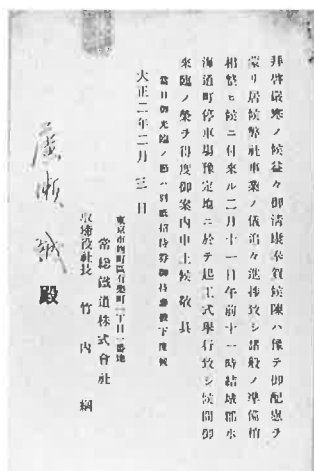 拝啓嚴寒ノ候益々御淸康奉賀候陳ハ豫テ御配慮ヲ
蒙リ居候弊社事業ノ儀追々進捗致シ諸般ノ準備稍
相整ヒ候ニ付來ル二月十一日午前十一時結城郡水
海道町停車場豫定地ニ於テ起工式擧行致シ候間御
來臨ノ榮ヲ得度御案内申上候 敬具
當日御光臨ノ節ハ此招待券御持參被下度候
大正二年二月三日
東京市麴町區有樂町一丁目一番地
常總鐵道株式會社
取締役社長 竹内 綱
廣瀬 誠 殿